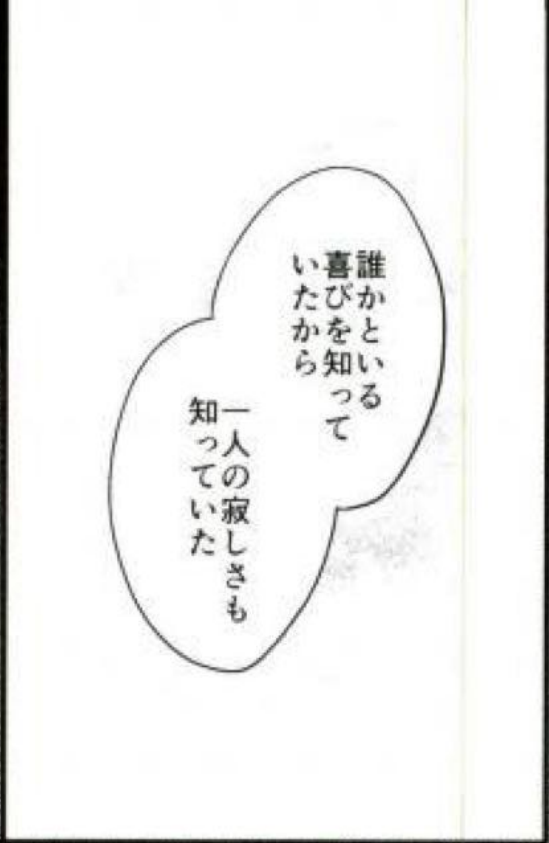 誰かといる
喜びを知って
いたから
一人の寂しさも
知っていた